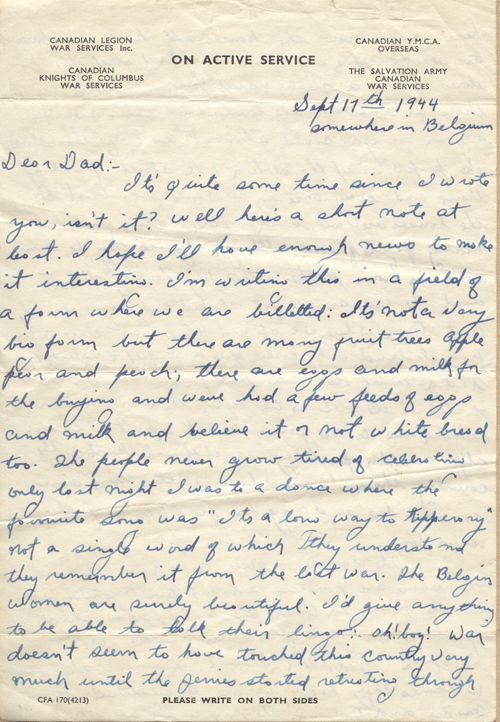 CANADIAN LEGION
WAR SERVICES Inc.
CANADIAN
KNIGHTS OF COLUMBUS
WAR SERVICES
ON ACTIVE SERVICE
CANADIAN Y.M.C.A.
OVERSEAS
THE SALVATION ARMY
CANADIAN
WAR SERVICES
Sept 17th 1944
somewhere in Belgium
Dear Dad:-
It's quite some time since I wrote
you, isn't it? Well here's a short note at
least. I hope I'll have enough news to make
it interesting. I'm writing this in a field of
a farm where we are billetted: It's not a very
big farm but there are many fruit trees apple
pear and peach; there are eggs and milk for
the buying and we've had a few feeds of eggs
and milk and believe it or not white bread
too. The people never grow tired of celebrating
only last night I was to a dance where the
favourite song was "It's a long way to Tipperary"
not a single word of which they understand
they remember it from the last war. The Belgian
women are surely beautiful. I'd give anything
to be able to talk their lingo: oh! boy! War
doesn't seem to have touched this country very
much until the jerries started retreating through
CFA 170(4213)
PLEASE WRITE ON BOTH SIDES